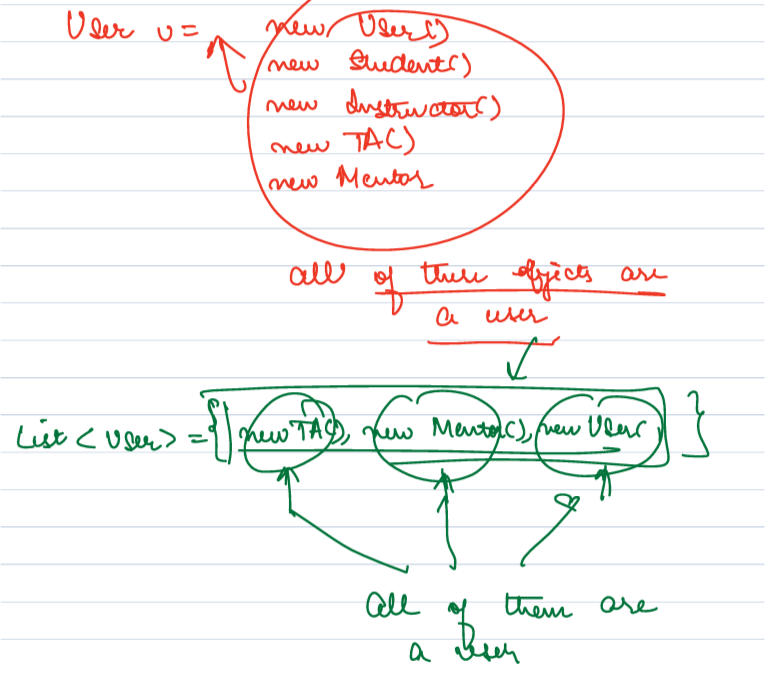 User u = new User()
new Student()
new Instructor()
new TA()
new Mentor
all of these objects are
a user
List < User > = { new TA(), new Mentor(), new User() }
all of them are
a user